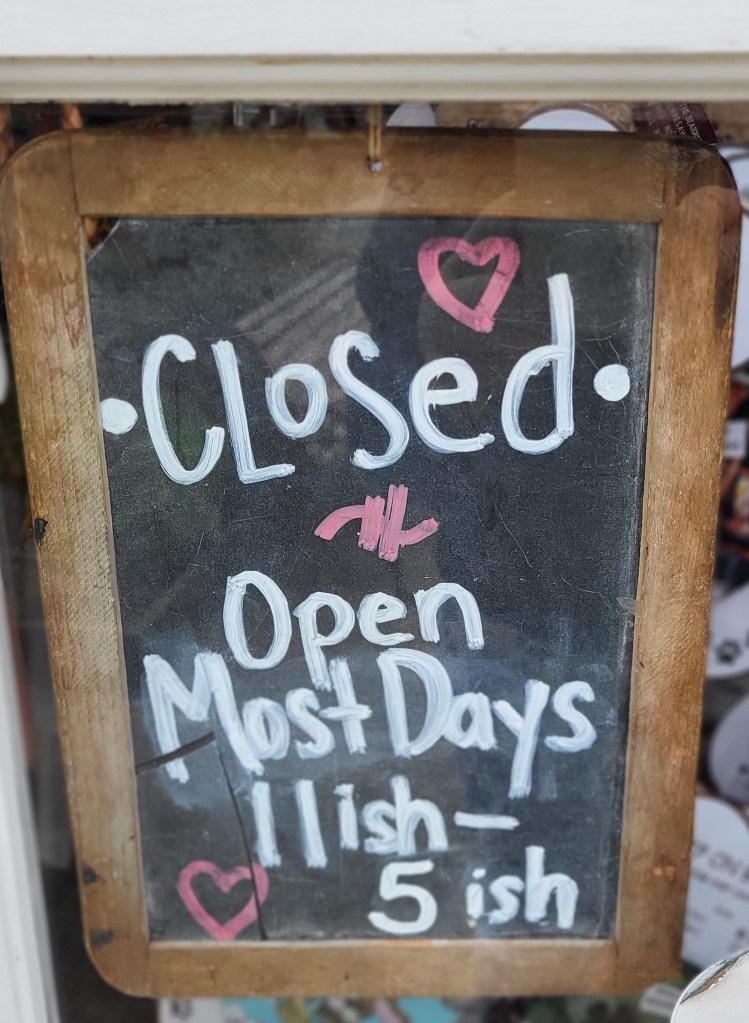 • Closed •
Open
Most Days
11ish –
5 ish